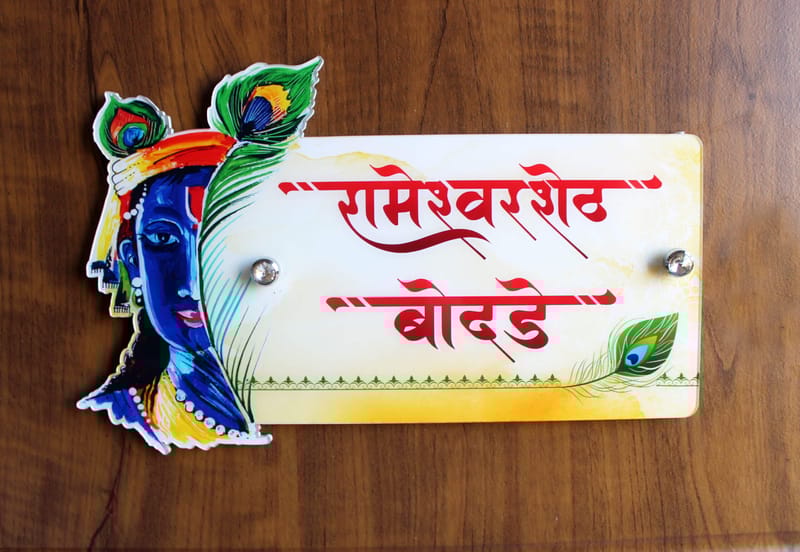 रामेश्वरशेठ
बोदडे